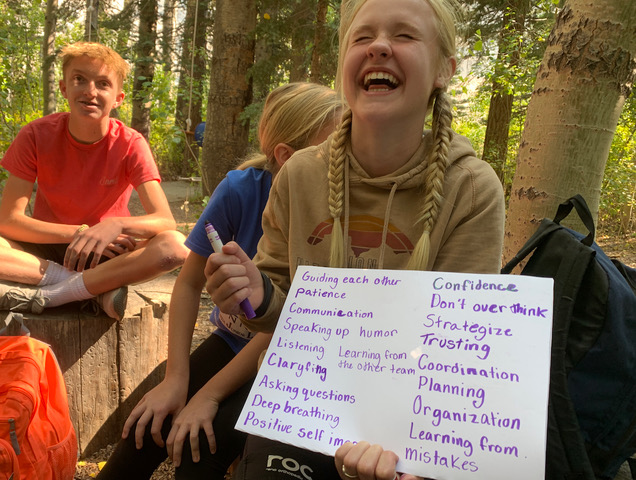 Guiding each other
patience
Communication
Speaking up humor
Listening
Learning from
the other team
Claryfing
Asking questions
Deep breathing
Positive self
Confidence
Don't over think
Strategize
Trusting
Coordination
Planning
Organization
Learning from
mistakes
roc